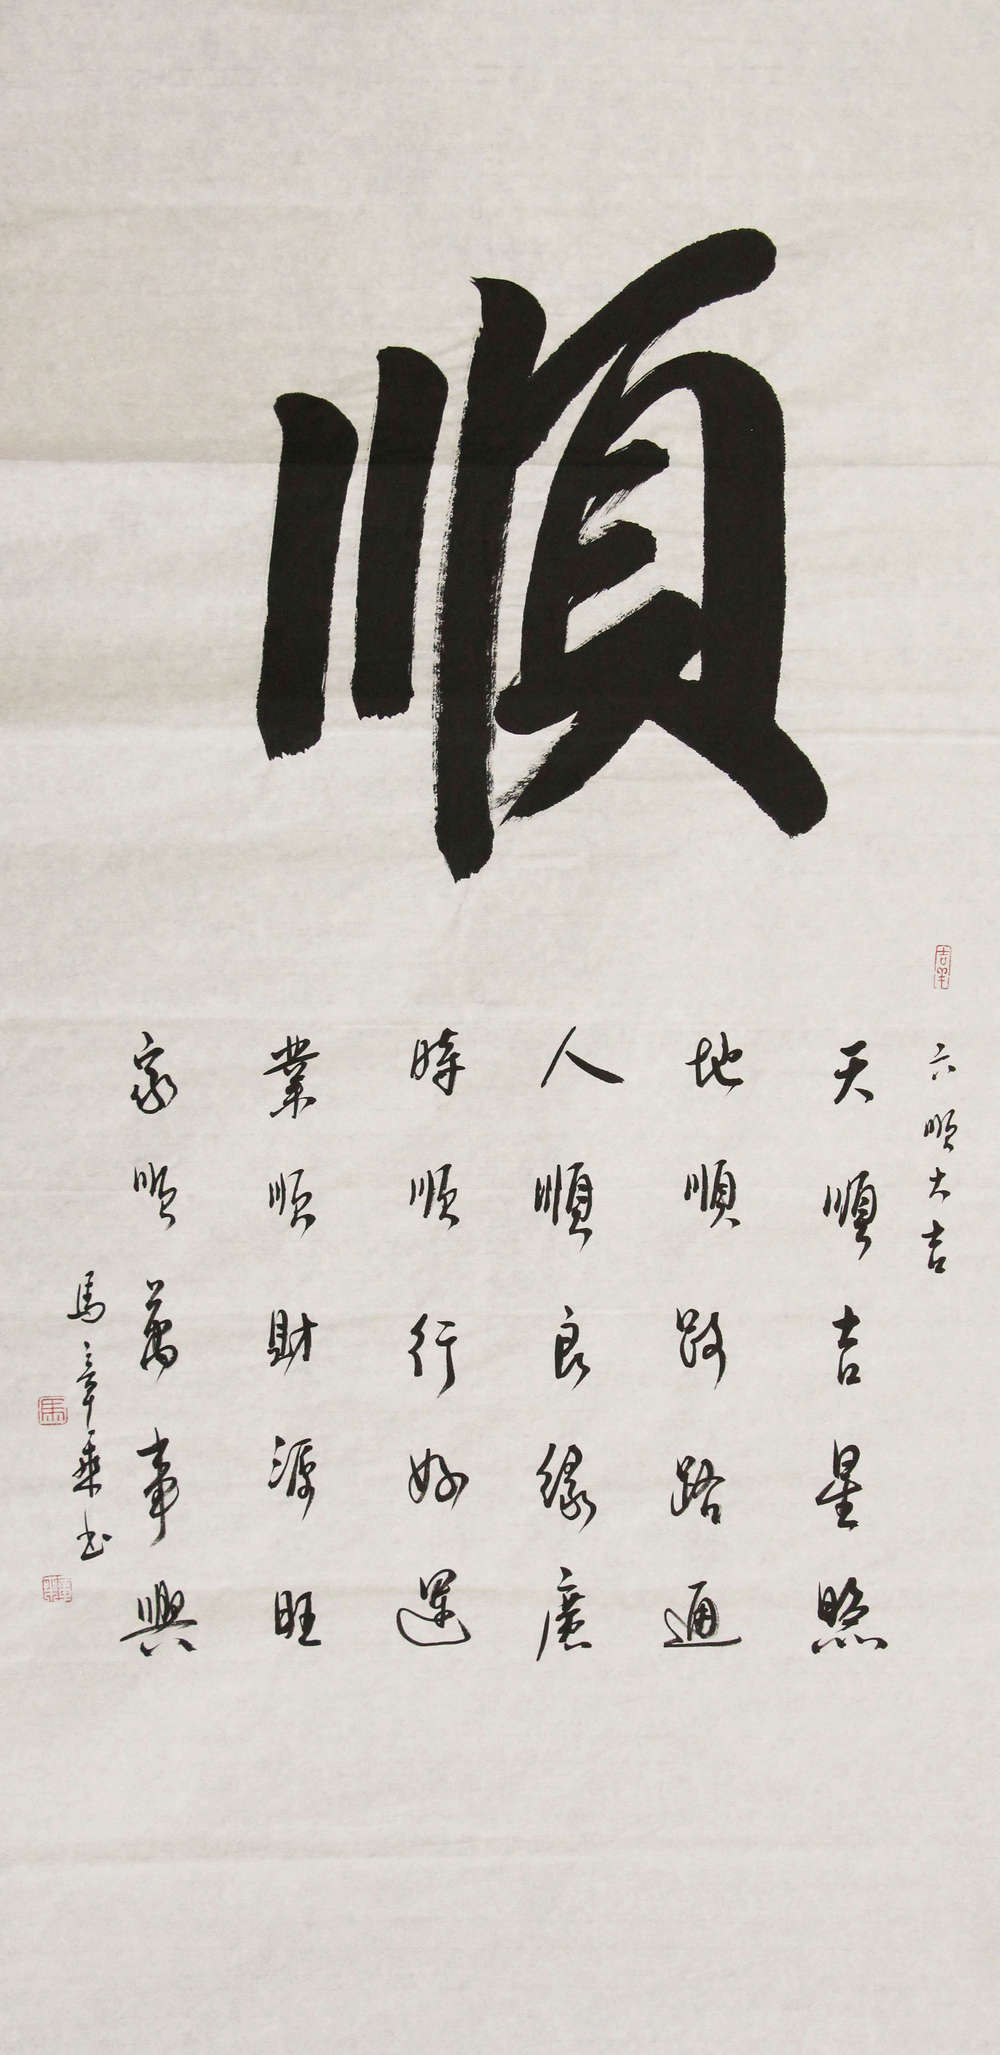 順
六順大吉
天順吉星照
地順跤路通
人順良緣廣
時順行好運
業順財源旺
家順萬事興
馬章乘书